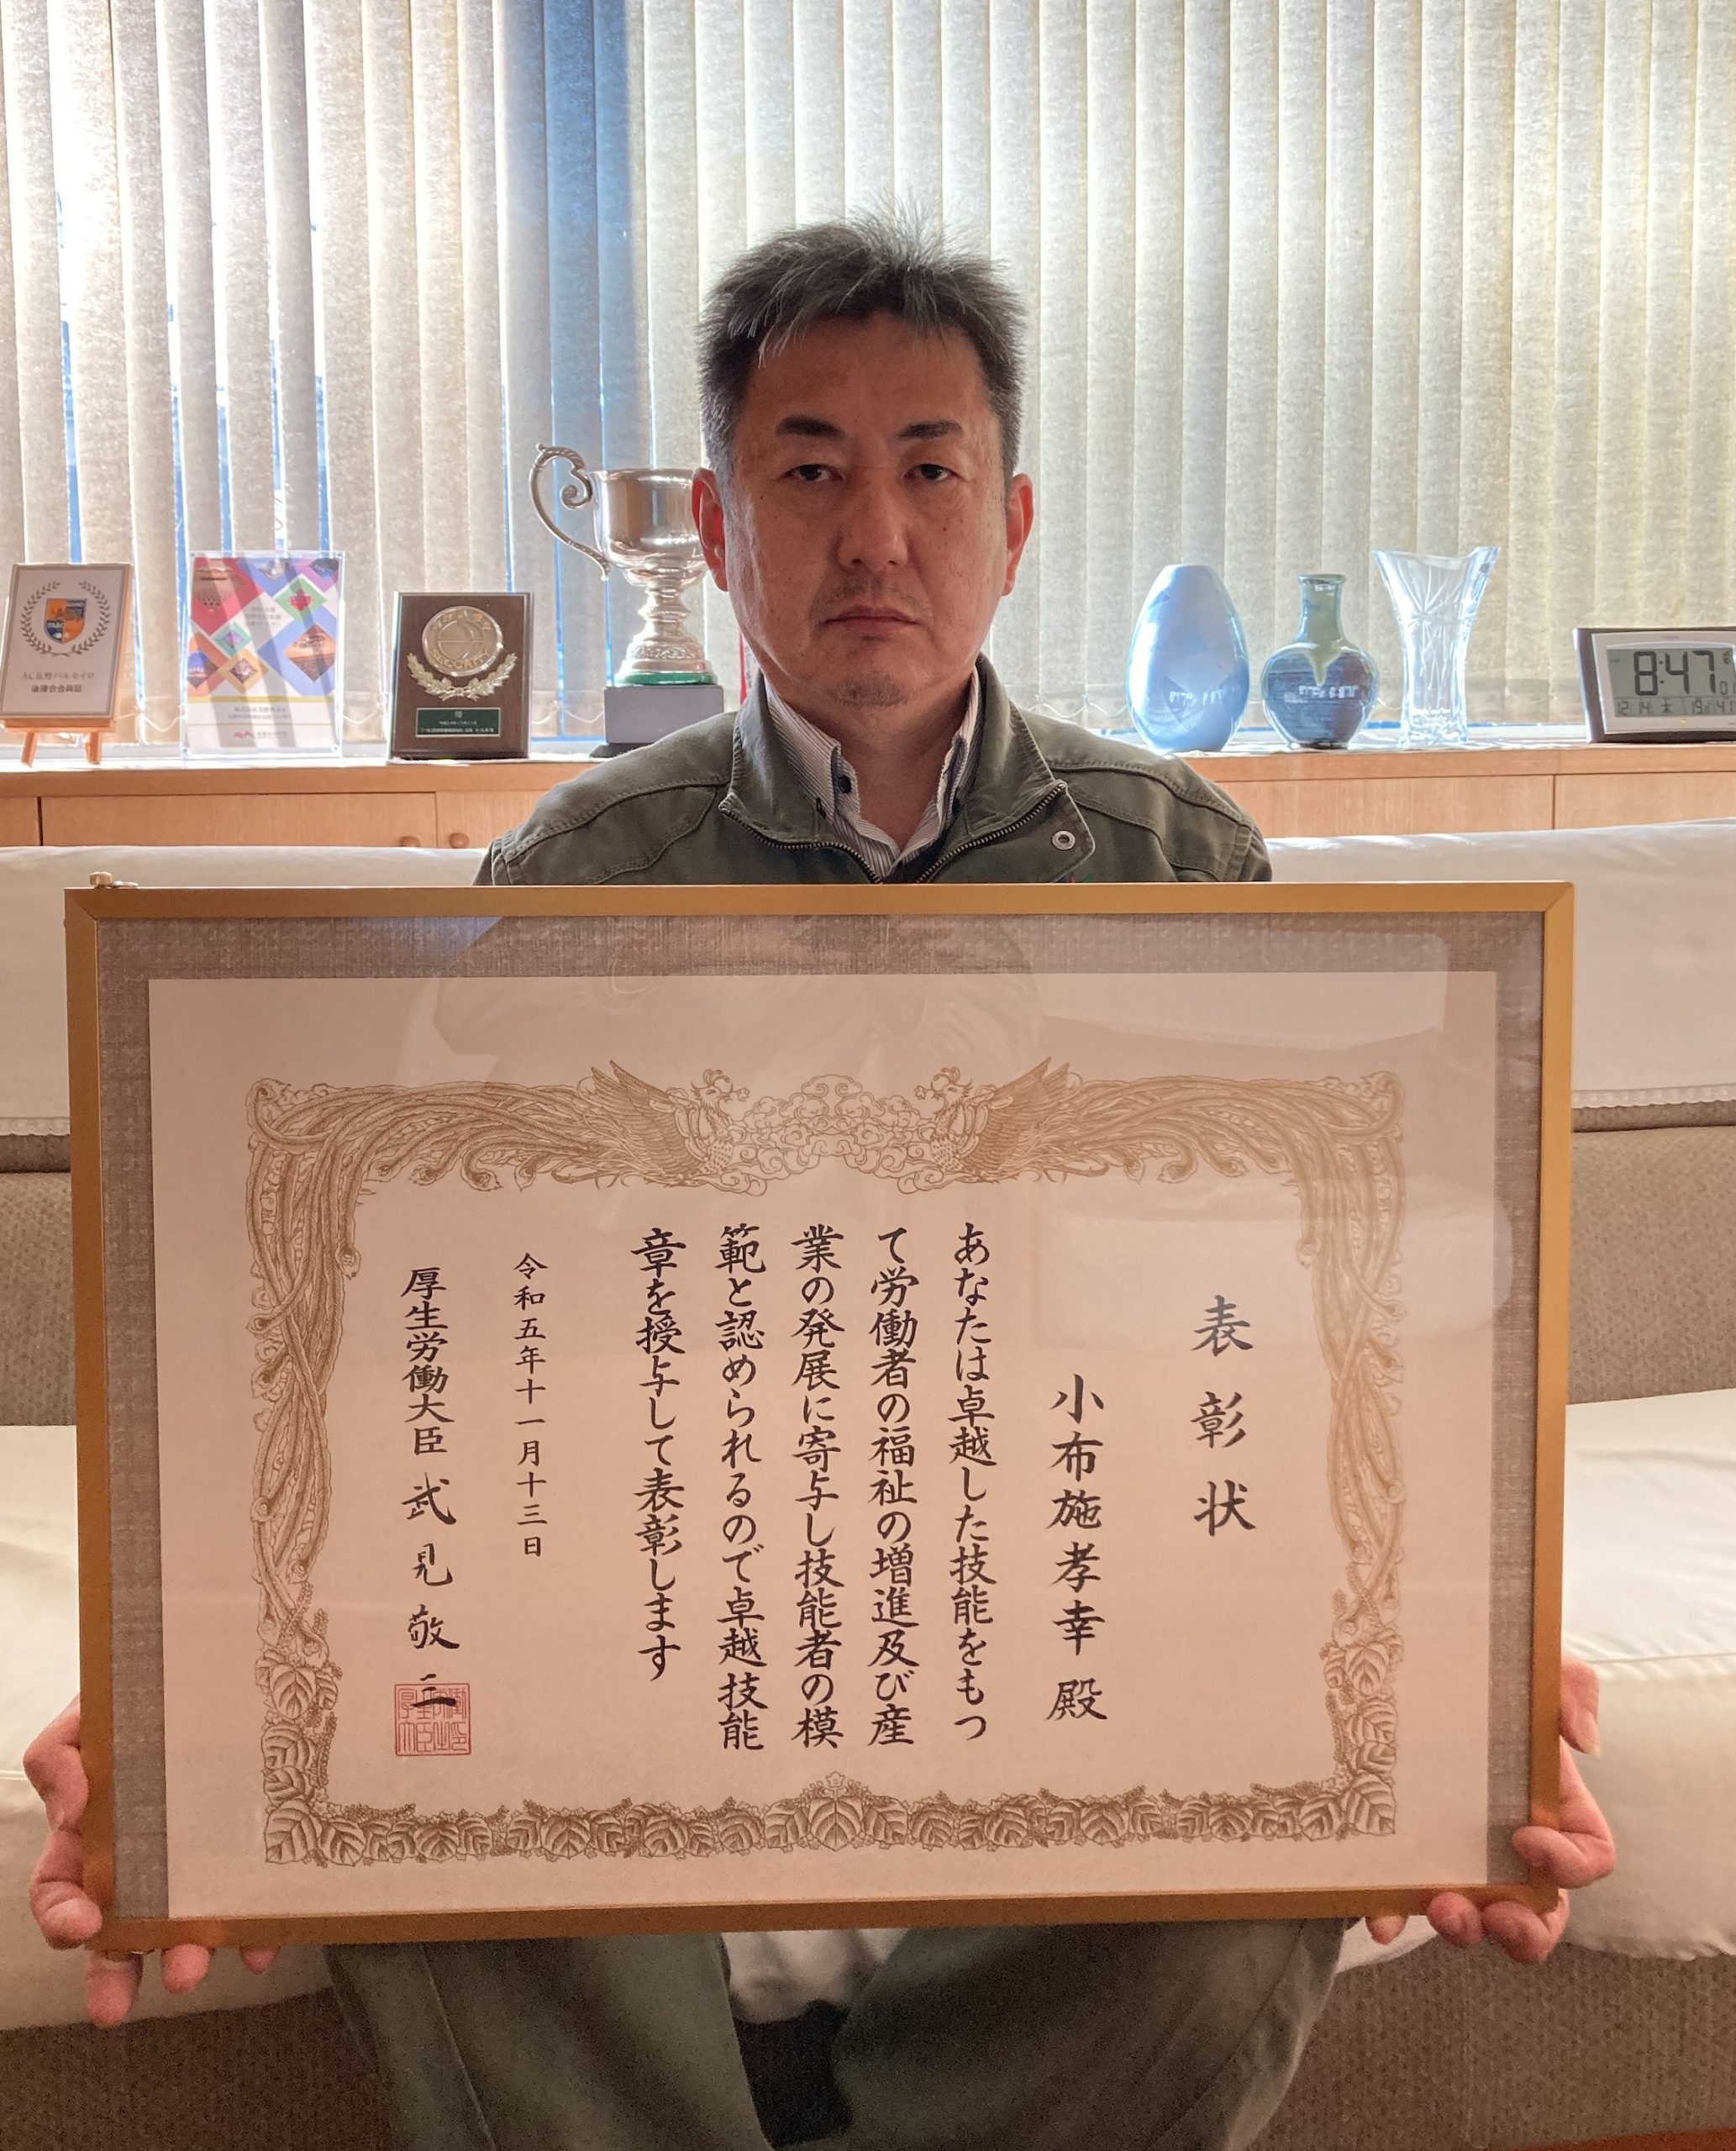 表彰状
小布施孝幸殿
あなたは卓越した技能をもっ
て労働者の福祉の増進及び産
業の発展に寄与し技能者の模
範と認められるので卓越技能
章を授与して表彰します
令和五年十一月十三日
厚生労働大臣 武見敬三
AC長野パルセイロ
後援会会員証
SECURITY
8:47
12 14 木